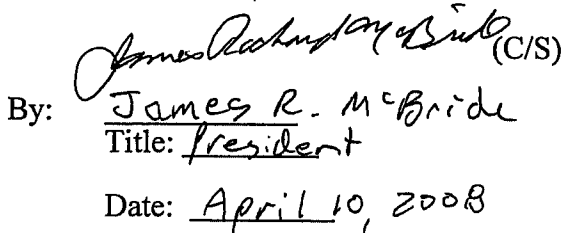 James Richard McBride (C/S)
By: James R. McBride
Title: President
Date: April 10, 2008